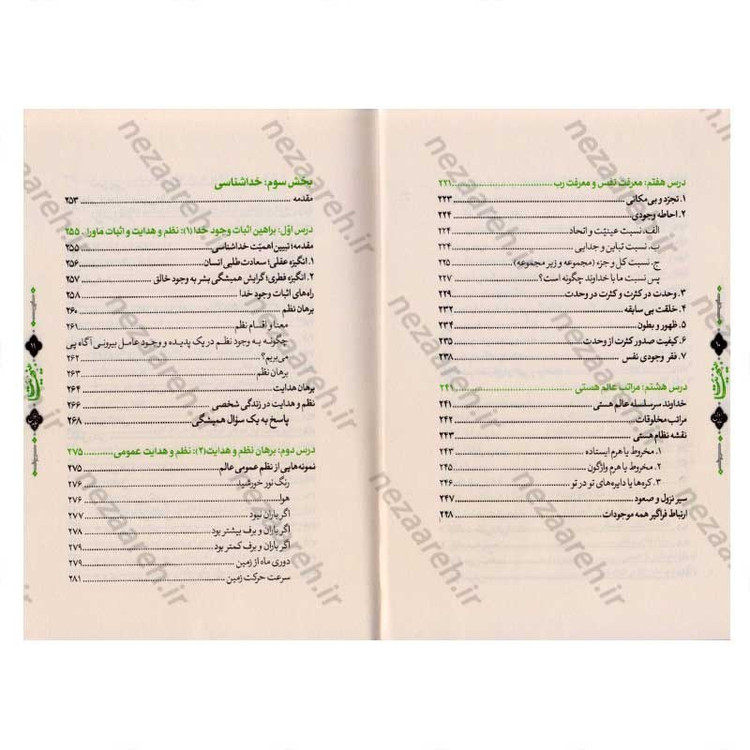 درس هفتم: معرفت نفس و معرفت رب ... ۲۲۱
۱. تجرّد و بی‌مکانی ... ۲۲۳
۲. احاطه وجودی ... ۲۲۴
الف. نسبت عینیّت و اتحاد ... ۲۲۴
ب. نسبت تباین و جدایی ... ۲۲۴
ج. نسبت کل و جزء (مجموعه و زیر مجموعه) ... ۲۲۵
پس نسبت ما با خداوند چگونه است؟ ... ۲۲۷
۳. وحدت در کثرت و کثرت در وحدت ... ۲۲۹
۴. خلقت بی سابقه ... ۲۳۲
۵. ظهور و بطون ... ۲۳۴
۶. کیفیت صدور کثرت از وحدت ... ۲۳۵
۷. فقر وجودی نفس ... ۲۳۸
درس هشتم: مراتب عالم هستی ... ۲۴۱
خداوند سرسلسله عالم هستی ... ۲۴۱
مراتب مخلوقات ... ۲۴۲
نقشه نظام هستی ... ۲۴۳
۱. مخروط یا هرم ایستاده ... ۲۴۴
۲. مخروط یا هرم واژگون ... ۲۴۵
۳. کره‌ها یا دایره‌های تو در تو ... ۲۴۶
سیر نزول و صعود ... ۲۴۷
ارتباط فراگیر همه موجودات ... ۲۴۸
بخش سوم: خداشناسی
مقدمه ... ۲۵۳
درس اوّل: براهین اثبات وجود خدا (۱): نظم و هدایت و اثبات ماورا ... ۲۵۵
مقدمه؛ تبیین اهمیّت خداشناسی ... ۲۵۵
۱. انگیزه عقلی؛ سعادت طلبی انسان ... ۲۵۶
۲. انگیزه فطری؛ گرایش همیشگی بشر به وجود خالق ... ۲۵۷
راه‌های اثبات وجود خدا ... ۲۵۸
برهان نظم ... ۲۶۰
معنا و اقسام نظم ... ۲۶۱
چگونه به وجود نظم در یک پدیده و وجود عامل بیرونی آگاه پی
می‌بریم؟ ... ۲۶۲
برهان نظم ... ۲۶۳
برهان هدایت ... ۲۶۴
نظم و هدایت در زندگی شخصی ... ۲۶۶
پاسخ به یک سؤال همیشگی ... ۲۶۸
درس دوم: برهان نظم و هدایت(۲): نظم و هدایت عمومی ... ۲۷۵
نمونه‌هایی از نظم عمومی عالم ... ۲۷۵
رنگ نور خورشید ... ۲۷۶
هوا ... ۲۷۶
اگر باران نبود ... ۲۷۷
اگر باران و برف بیشتر بود ... ۲۷۸
اگر باران و برف کمتر بود ... ۲۷۹
دوری ماه از زمین ... ۲۷۹
سرعت حرکت زمین ... ۲۸۱
nezaareh.ir